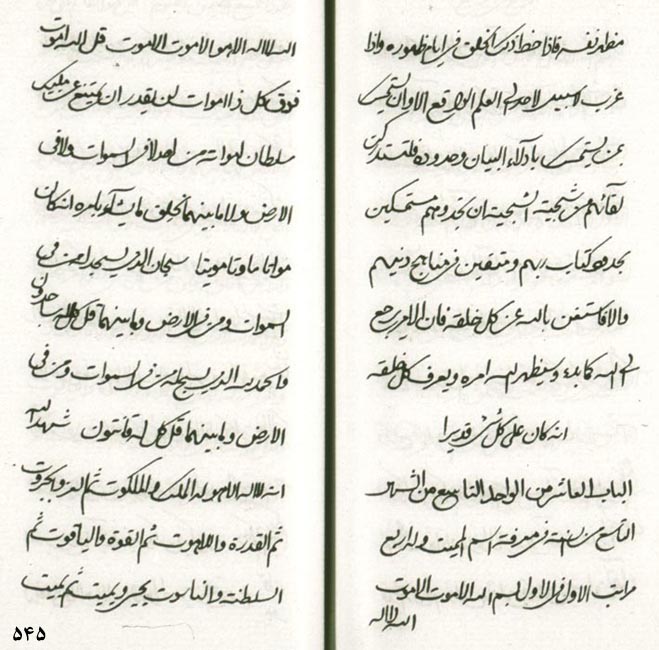 مظهر نفسه فاذا خط اذكر الخلق في ايام ظهوره واذا
غرب لا سبيل لاحد الى العلم الواقع الا وان يستمسك
عن يستمسك بادلاء البيان وحدوده فلتستدركن
لقائهم من شجية الشجية ان تجدونهم مستمسكين
بحدود كتاب ربهم ومتقين في مناهج دينهم
والا فاستغن بالله عن كل خلقه فان الامر يرجع
الى الله كما بدء وسيظهر الله امره ويعرف كل خلقه
انه كان على كل شيء قديرا
الباب العاشر من الواحد التاسع من الشهر
التاسع من السنة في معرفة اسم المميت وله اربع
مراتب الاول في الاول بسم الله الاموت الاموت
الله لا اله
الله لا اله الا هو الاموت الاموت قل الله اموت
فوق كل ذا اموات لن يقدر ان يمتنع عن مليك
سلطان امواته من احد لا في السموات ولا في
الارض ولا ما بينهما يخلق ما يشاء بامره انه كان
مواتا ماوتا مويتا سبحان الذي يسجد له من في
السموات ومن في الارض وما بينهما قل كل له ساجدون
والحمد لله الذي يسبح له من في السموات ومن في
الارض وما بينهما قل كل له قانتون شهد الله
انه لا اله الا هو له الملك والملكوت ثم العز والجبروت
ثم القدرة واللاهوت ثم القوة والياقوت ثم
السلطنة والناسوت يحيي ويميت ثم يميت
۵۴۵